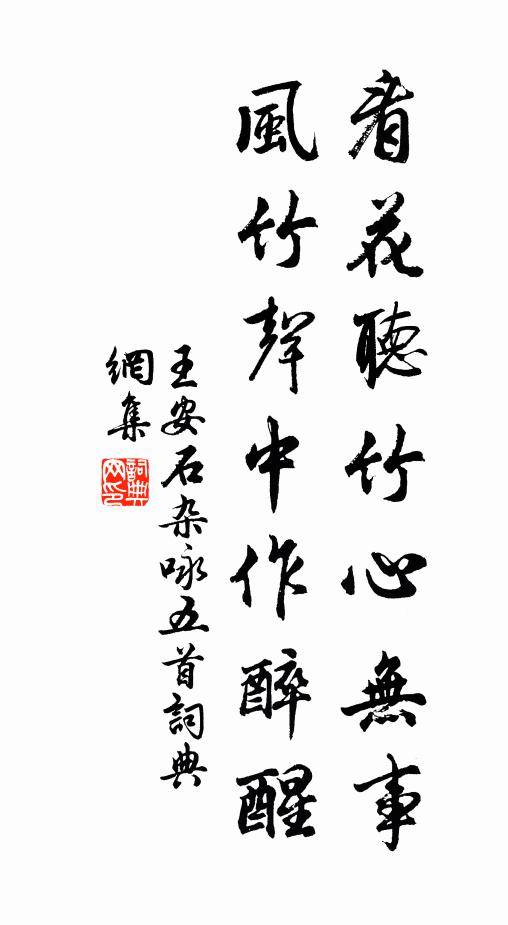 看花聽竹心無事
風竹聲中作醉醒
王安石杂咏五首詞典
網集
詞典
网印